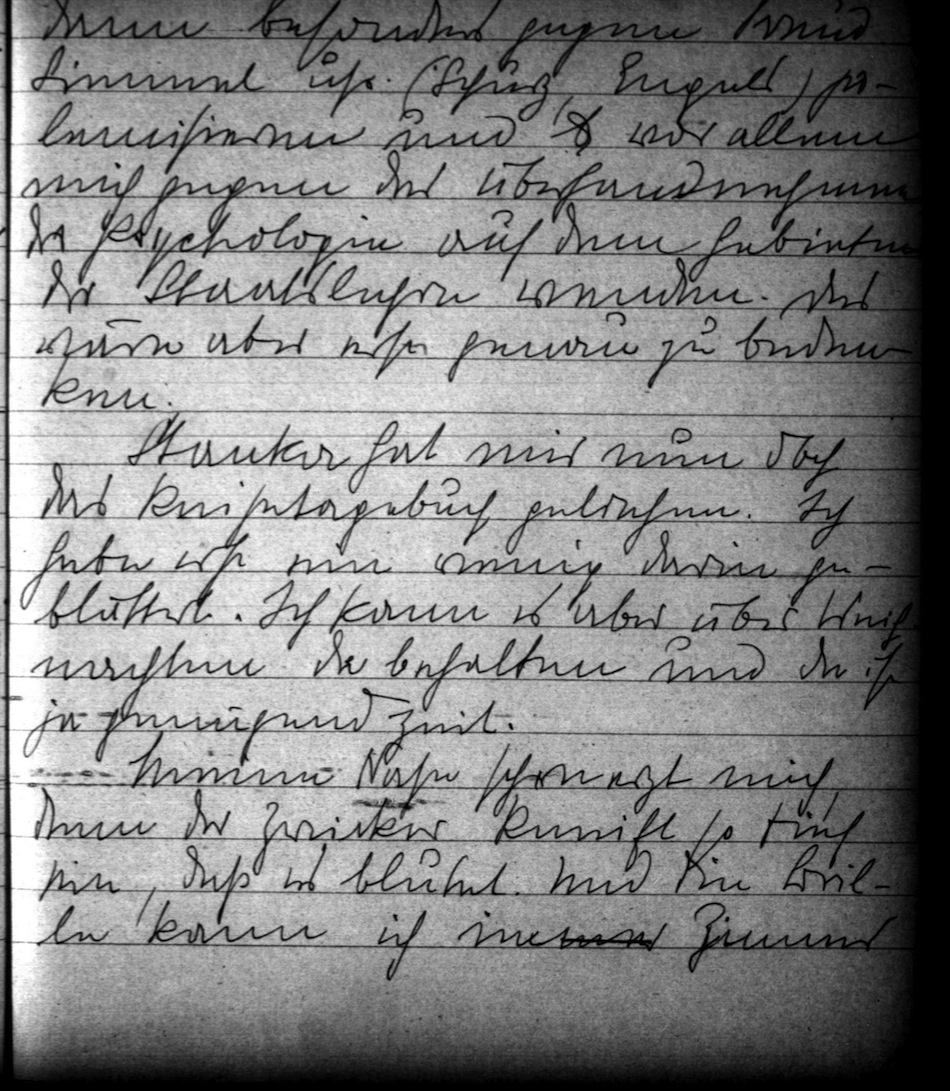 dann besonders gegen Freud
Simmel usw. (Schurz, Engels) po-
lemisieren und vor allem
mich gegen das Überhandnehmen
der Psychologie auf dem Gebiete
der Staatslehre wenden. Das
wäre aber erst genau zu beden-
ken.
Stanka hat mir nun doch
das Kriegstagebuch geliehen. Ich
habe erst ein wenig darin ge-
blättert. Ich kann es aber über Weih-
nachten da behalten und da ist
ja genügend Zeit.
Meine Nase schmerzt mich,
denn der Zwicker kneift so tief
ein, daß es blutet. Und die Bril-
le kann ich im Zimmer